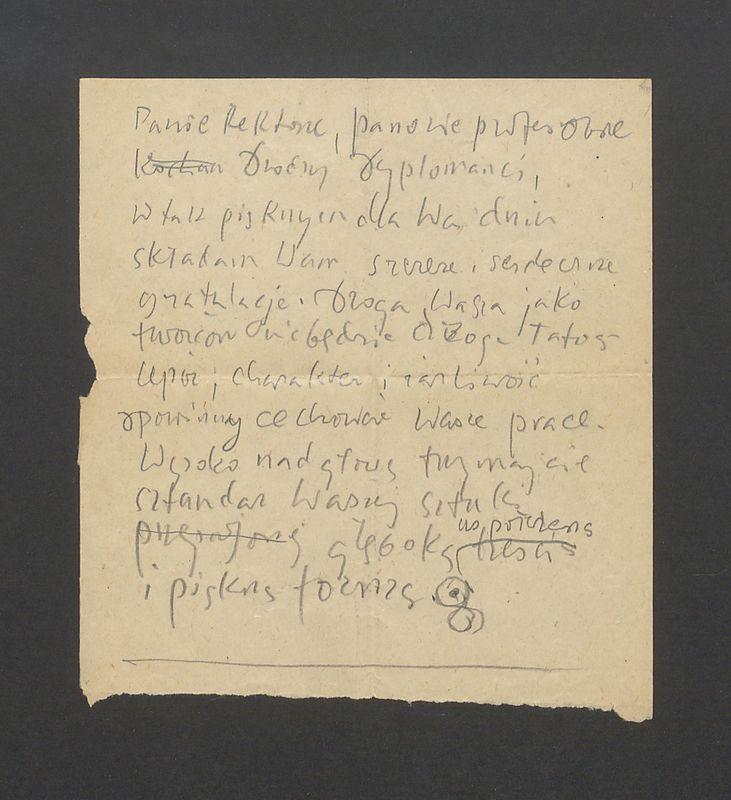 Panie Rektorze, panowie profesorowie
Kochan Drodzy Dyplomanci,
W tak pięknym dla Was dniu
składam Wam szczere i serdeczne
gratulacje. Droga Wasza jako
twórców nie będzie drogą łatwą
Upór, charakter i żarliwość
powinny cechować Wasze prace.
Wysoko nad głową trzymajcie
sztandar Waszej sztuki
wsparterą
głęboką treścią
i piękną formą.